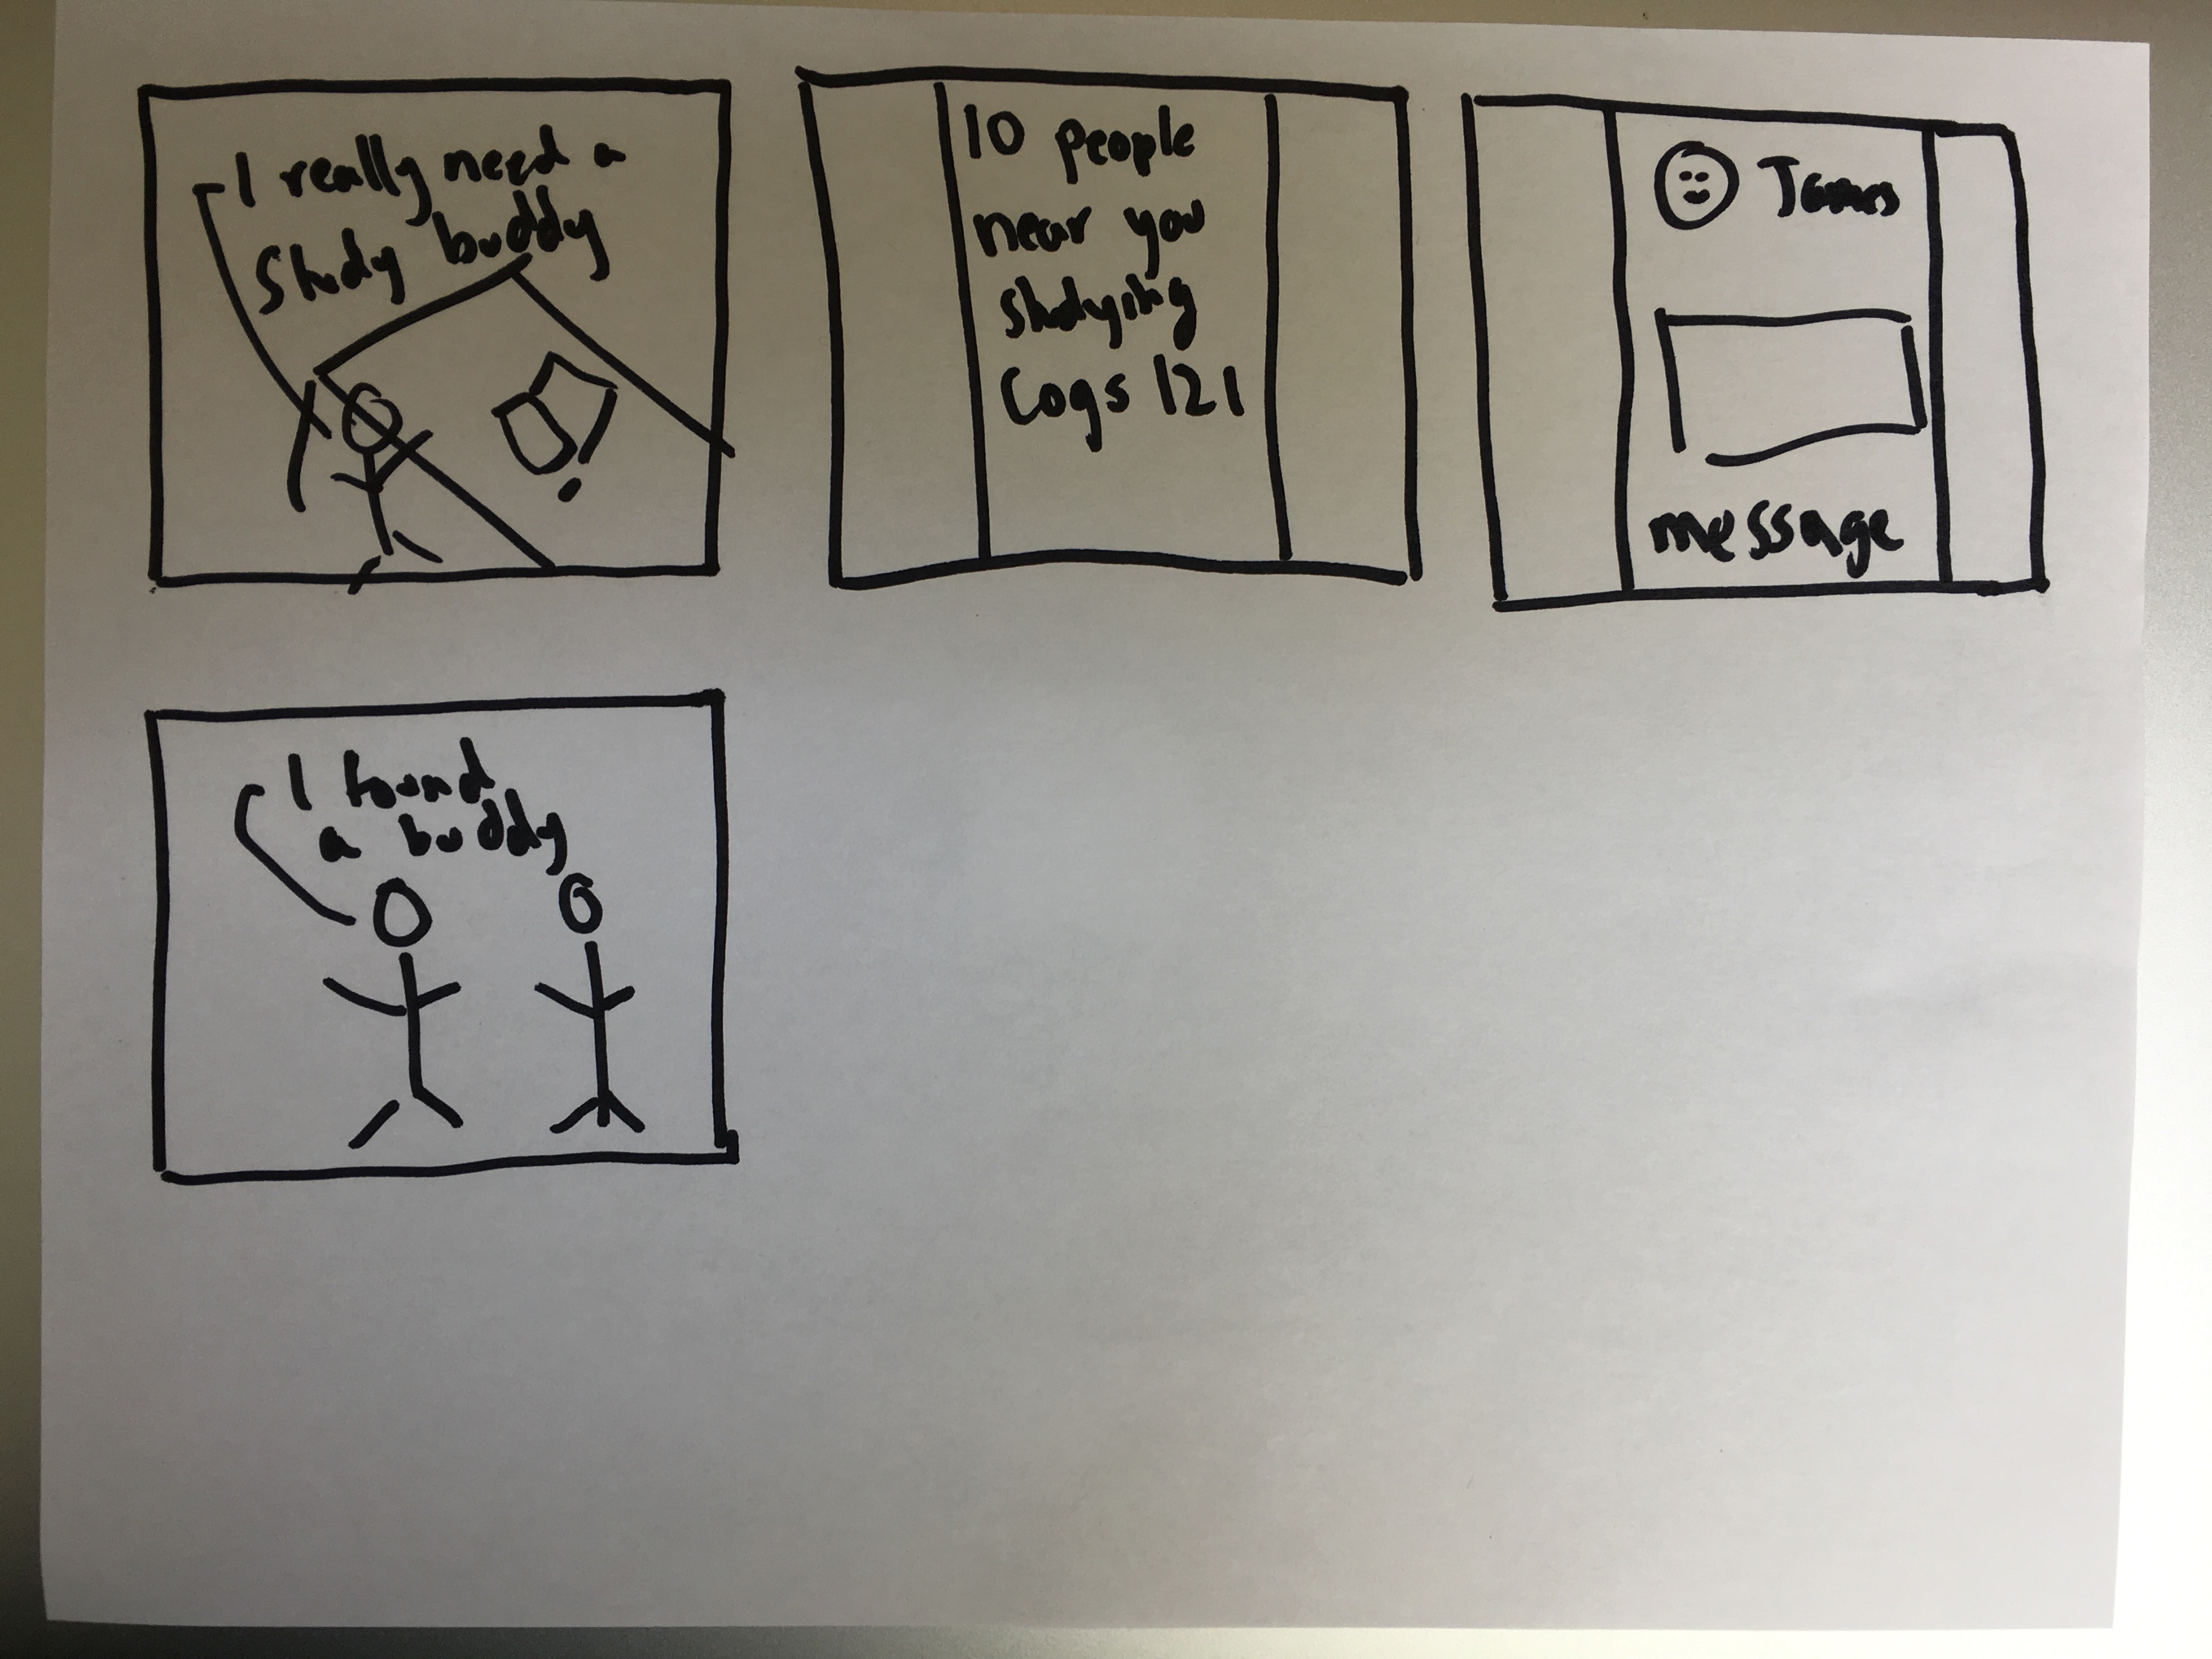 I really need a
study buddy
10 people
near you
studying
Cogs 121
James
message
I found
a buddy